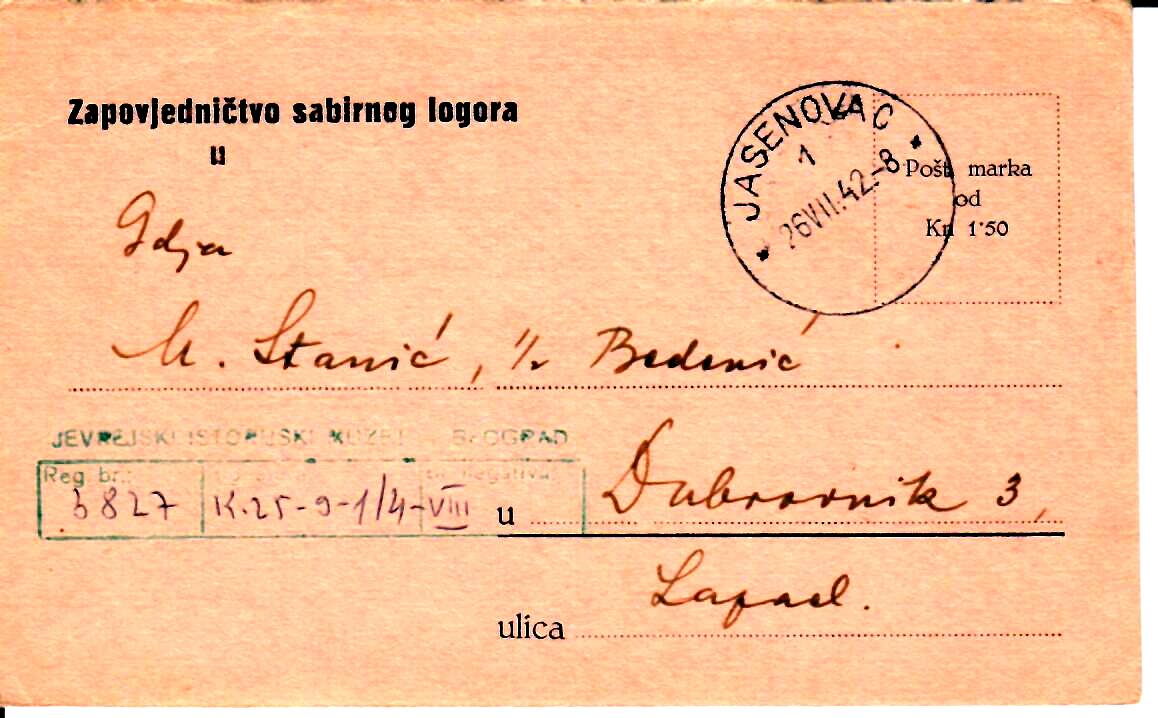 Zapovjedničtvo sabirnog logora
u
JASENOVAC
1
26.VII.42.-8
Pošt. marka
od
Kn 1·50
Gdja
M. Stanić, 1/r Bedenić
JEVREJSKI ISTORIJSKI MUZEJ - BEOGRAD
Reg. br.: negativa
3827 K.25-9-1/4-VIII
u Dubrovnik 3,
Lapad.
ulica